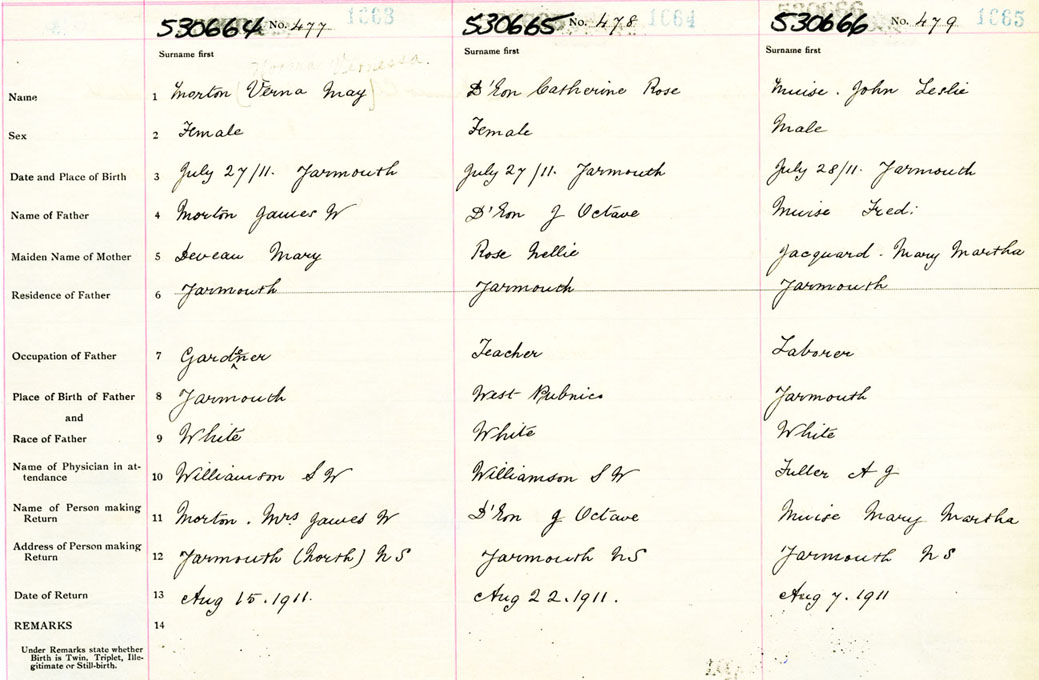 530664 No. 477 1663 530665 No. 478 1664 530666 No. 479 1665
Surname first Surname first Surname first
Name 1 Morton Verna May D'Eon Catherine Rose Muise. John Leslie
Sex 2 Female Female Male
Date and Place of Birth 3 July 27/11. Yarmouth July 27/11. Yarmouth July 28/11. Yarmouth
Name of Father 4 Morton James W D'Eon J Octave Muise Fred:
Maiden Name of Mother 5 Deveau Mary Rose Nellie Jacquard. Mary Martha
Residence of Father 6 Yarmouth Yarmouth Yarmouth
Occupation of Father 7 Gardener Teacher Laborer
Place of Birth of Father 8 Yarmouth West Pubnico Yarmouth
and
Race of Father 9 White White White
Name of Physician in at-
tendance 10 Williamson S W Williamson S W Fuller A J
Name of Person making
Return 11 Morton. Mrs James W D'Eon J Octave Muise Mary Martha
Address of Person making
Return 12 Yarmouth (North) N S Yarmouth N S Yarmouth N S
Date of Return 13 Aug 15. 1911. Aug 22. 1911. Aug 7. 1911
REMARKS 14
Under Remarks state whether
Birth is Twin. Triplet, Ille-
gitimate or Still-birth.